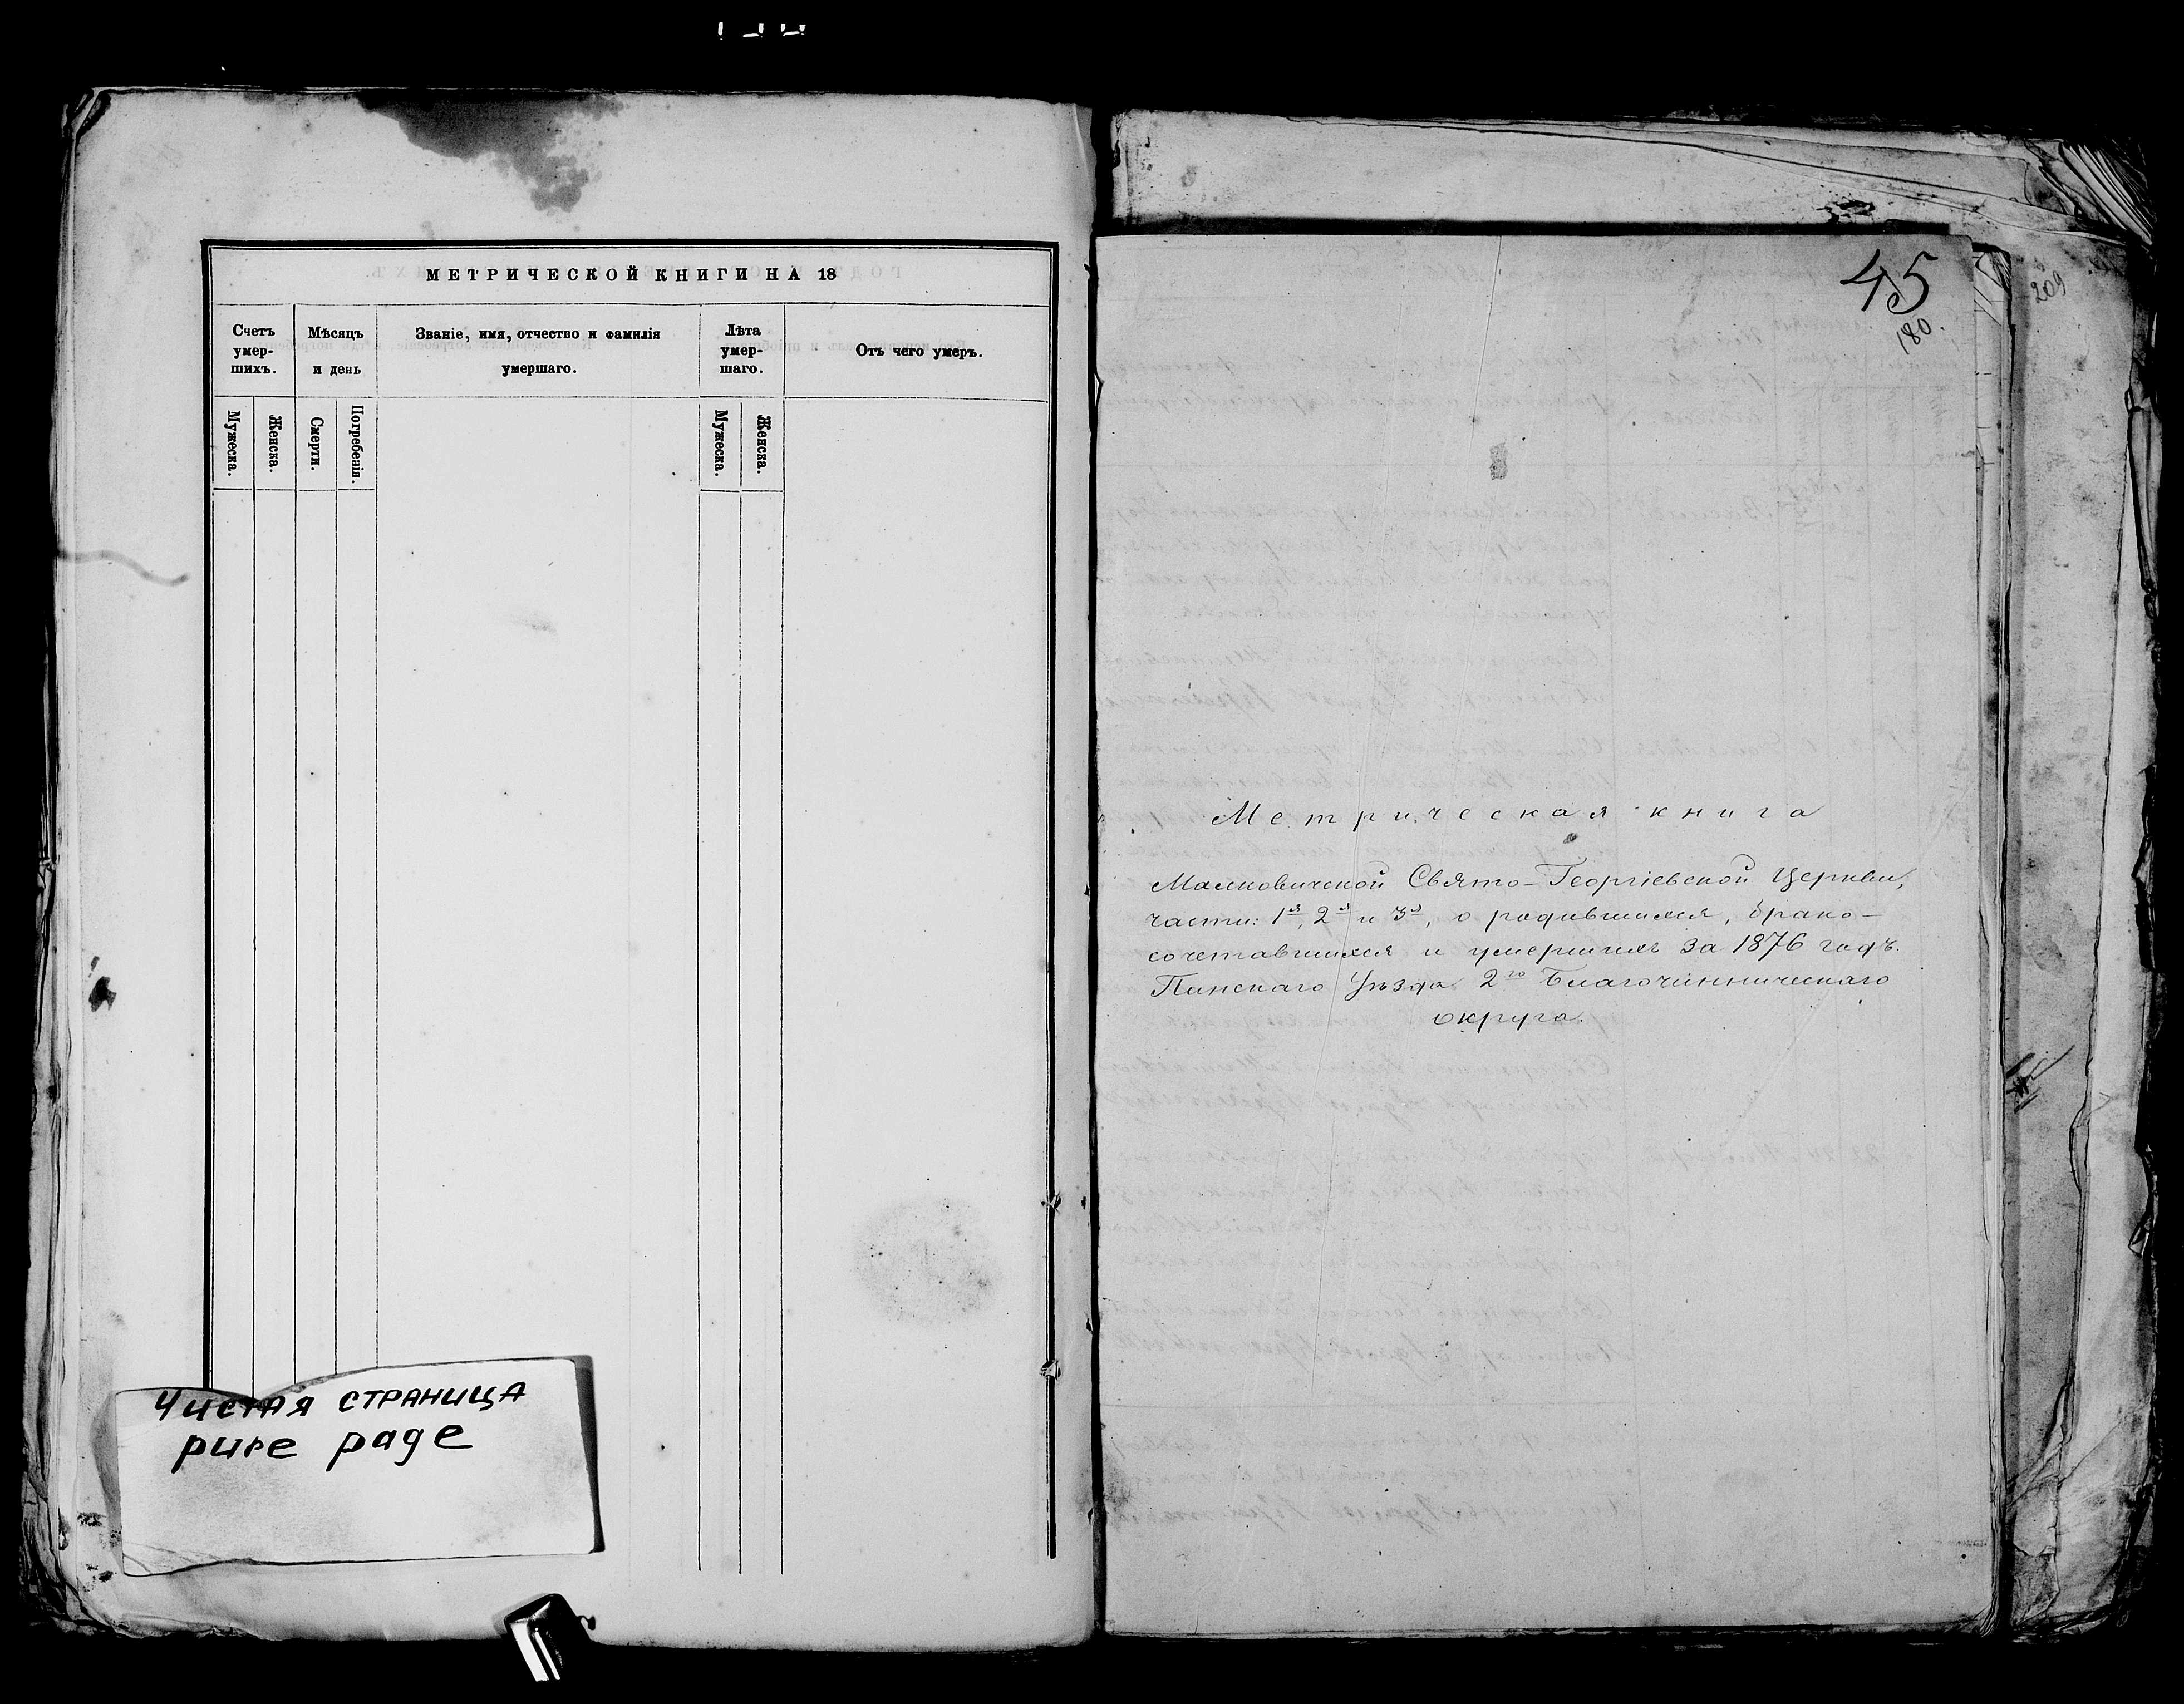 МЕТРИЧЕСКОЙ КНИГИ НА 18
Счетъ умер-шихъ.
Мѣсяцъ и день
Званіе, имя, отчество и фамилія умершаго.
Лѣта умер-шаго.
Отъ чего умеръ.
Мужеска.
Женска.
Смерти.
Погребенія.
Мужеска.
Женска.
Чистая СТРАНИЦА
pure page
45
180.
209
Метрическая книга
Малковичской Свято-Георгіевской Церкви,
части: 1я, 2я и 3я, о родившихся, брако-
сочетавшихся и умершихъ за 1876 годъ.
Пинскаго Уѣзда 2го Благочинническаго
округа.